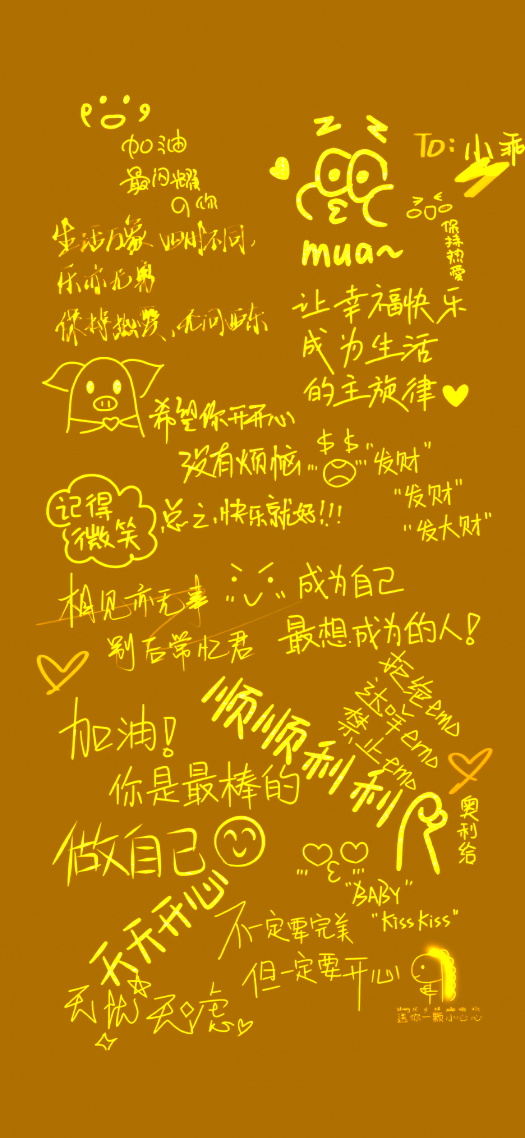 加油
最闪耀
的你
TO: 小乖
保持热爱
mua~
生活万象 四时不同,
乐亦无穷
保持热爱,无问西东
让幸福快乐
成为生活
的主旋律
希望你开开心心
没有烦恼...
$ $
"发财"
"发财"
"发大财"
记得
微笑
总之,快乐就好!!!
相见亦无事
别后常忆君
成为自己
最想成为的人!
拒绝emo
达咩emo
禁止emo
加油!
顺顺利利
你是最棒的
奥利给
做自己
"BABY"
"Kiss Kiss"
天天开心
不一定要完美
但一定要开心
无忧无虑
送你一颗小心心